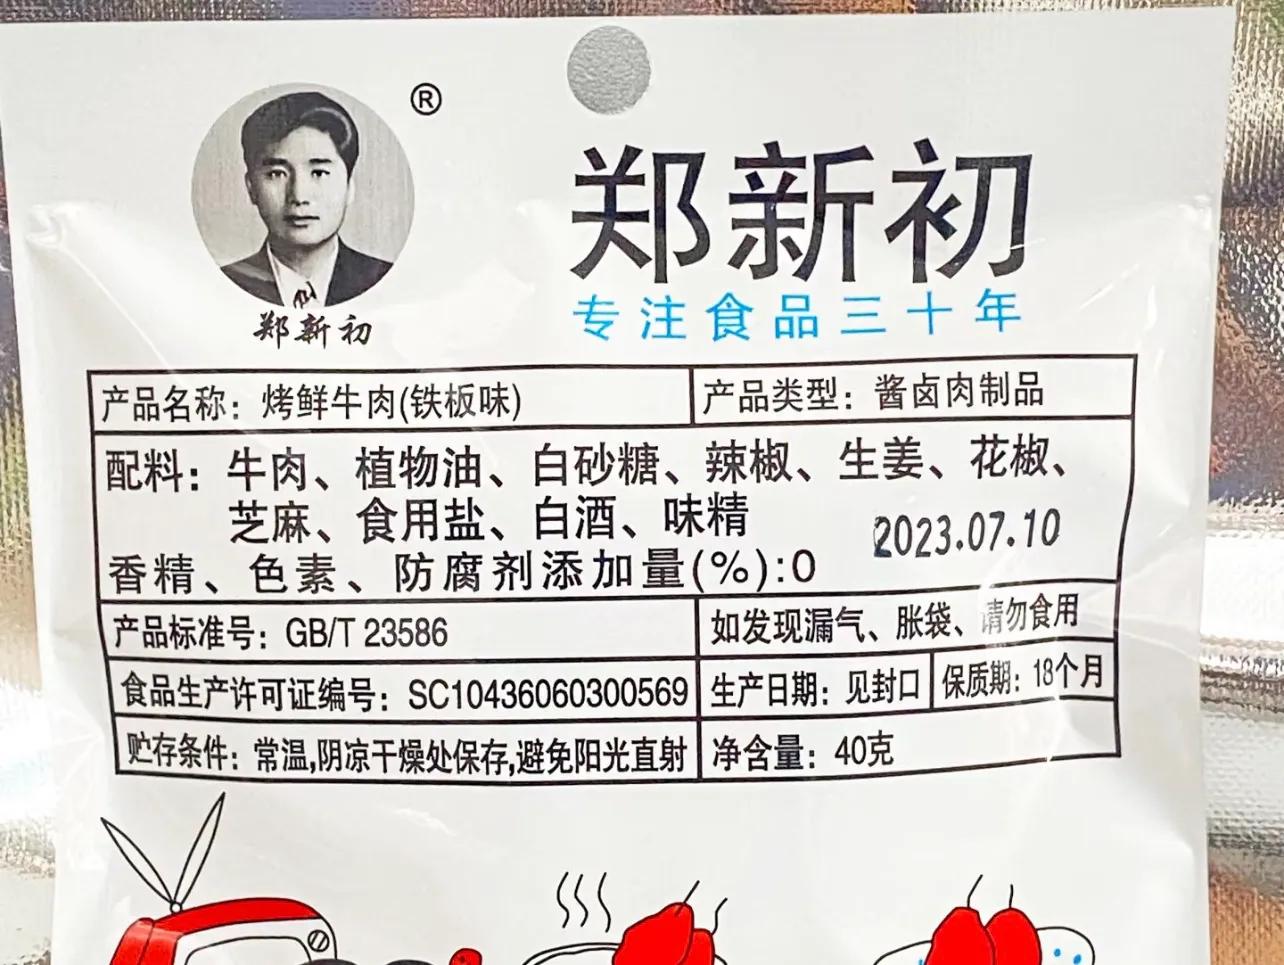 ®
郑新初
专注食品三十年
郑新初
产品名称：烤鲜牛肉(铁板味)
产品类型：酱卤肉制品
配料：牛肉、植物油、白砂糖、辣椒、生姜、花椒、
芝麻、食用盐、白酒、味精
2023.07.10
香精、色素、防腐剂添加量(%):0
产品标准号：GB/T 23586
如发现漏气、胀袋、请勿食用
食品生产许可证编号：SC10436060300569
生产日期：见封口
保质期：18个月
贮存条件：常温,阴凉干燥处保存,避免阳光直射
净含量：40克